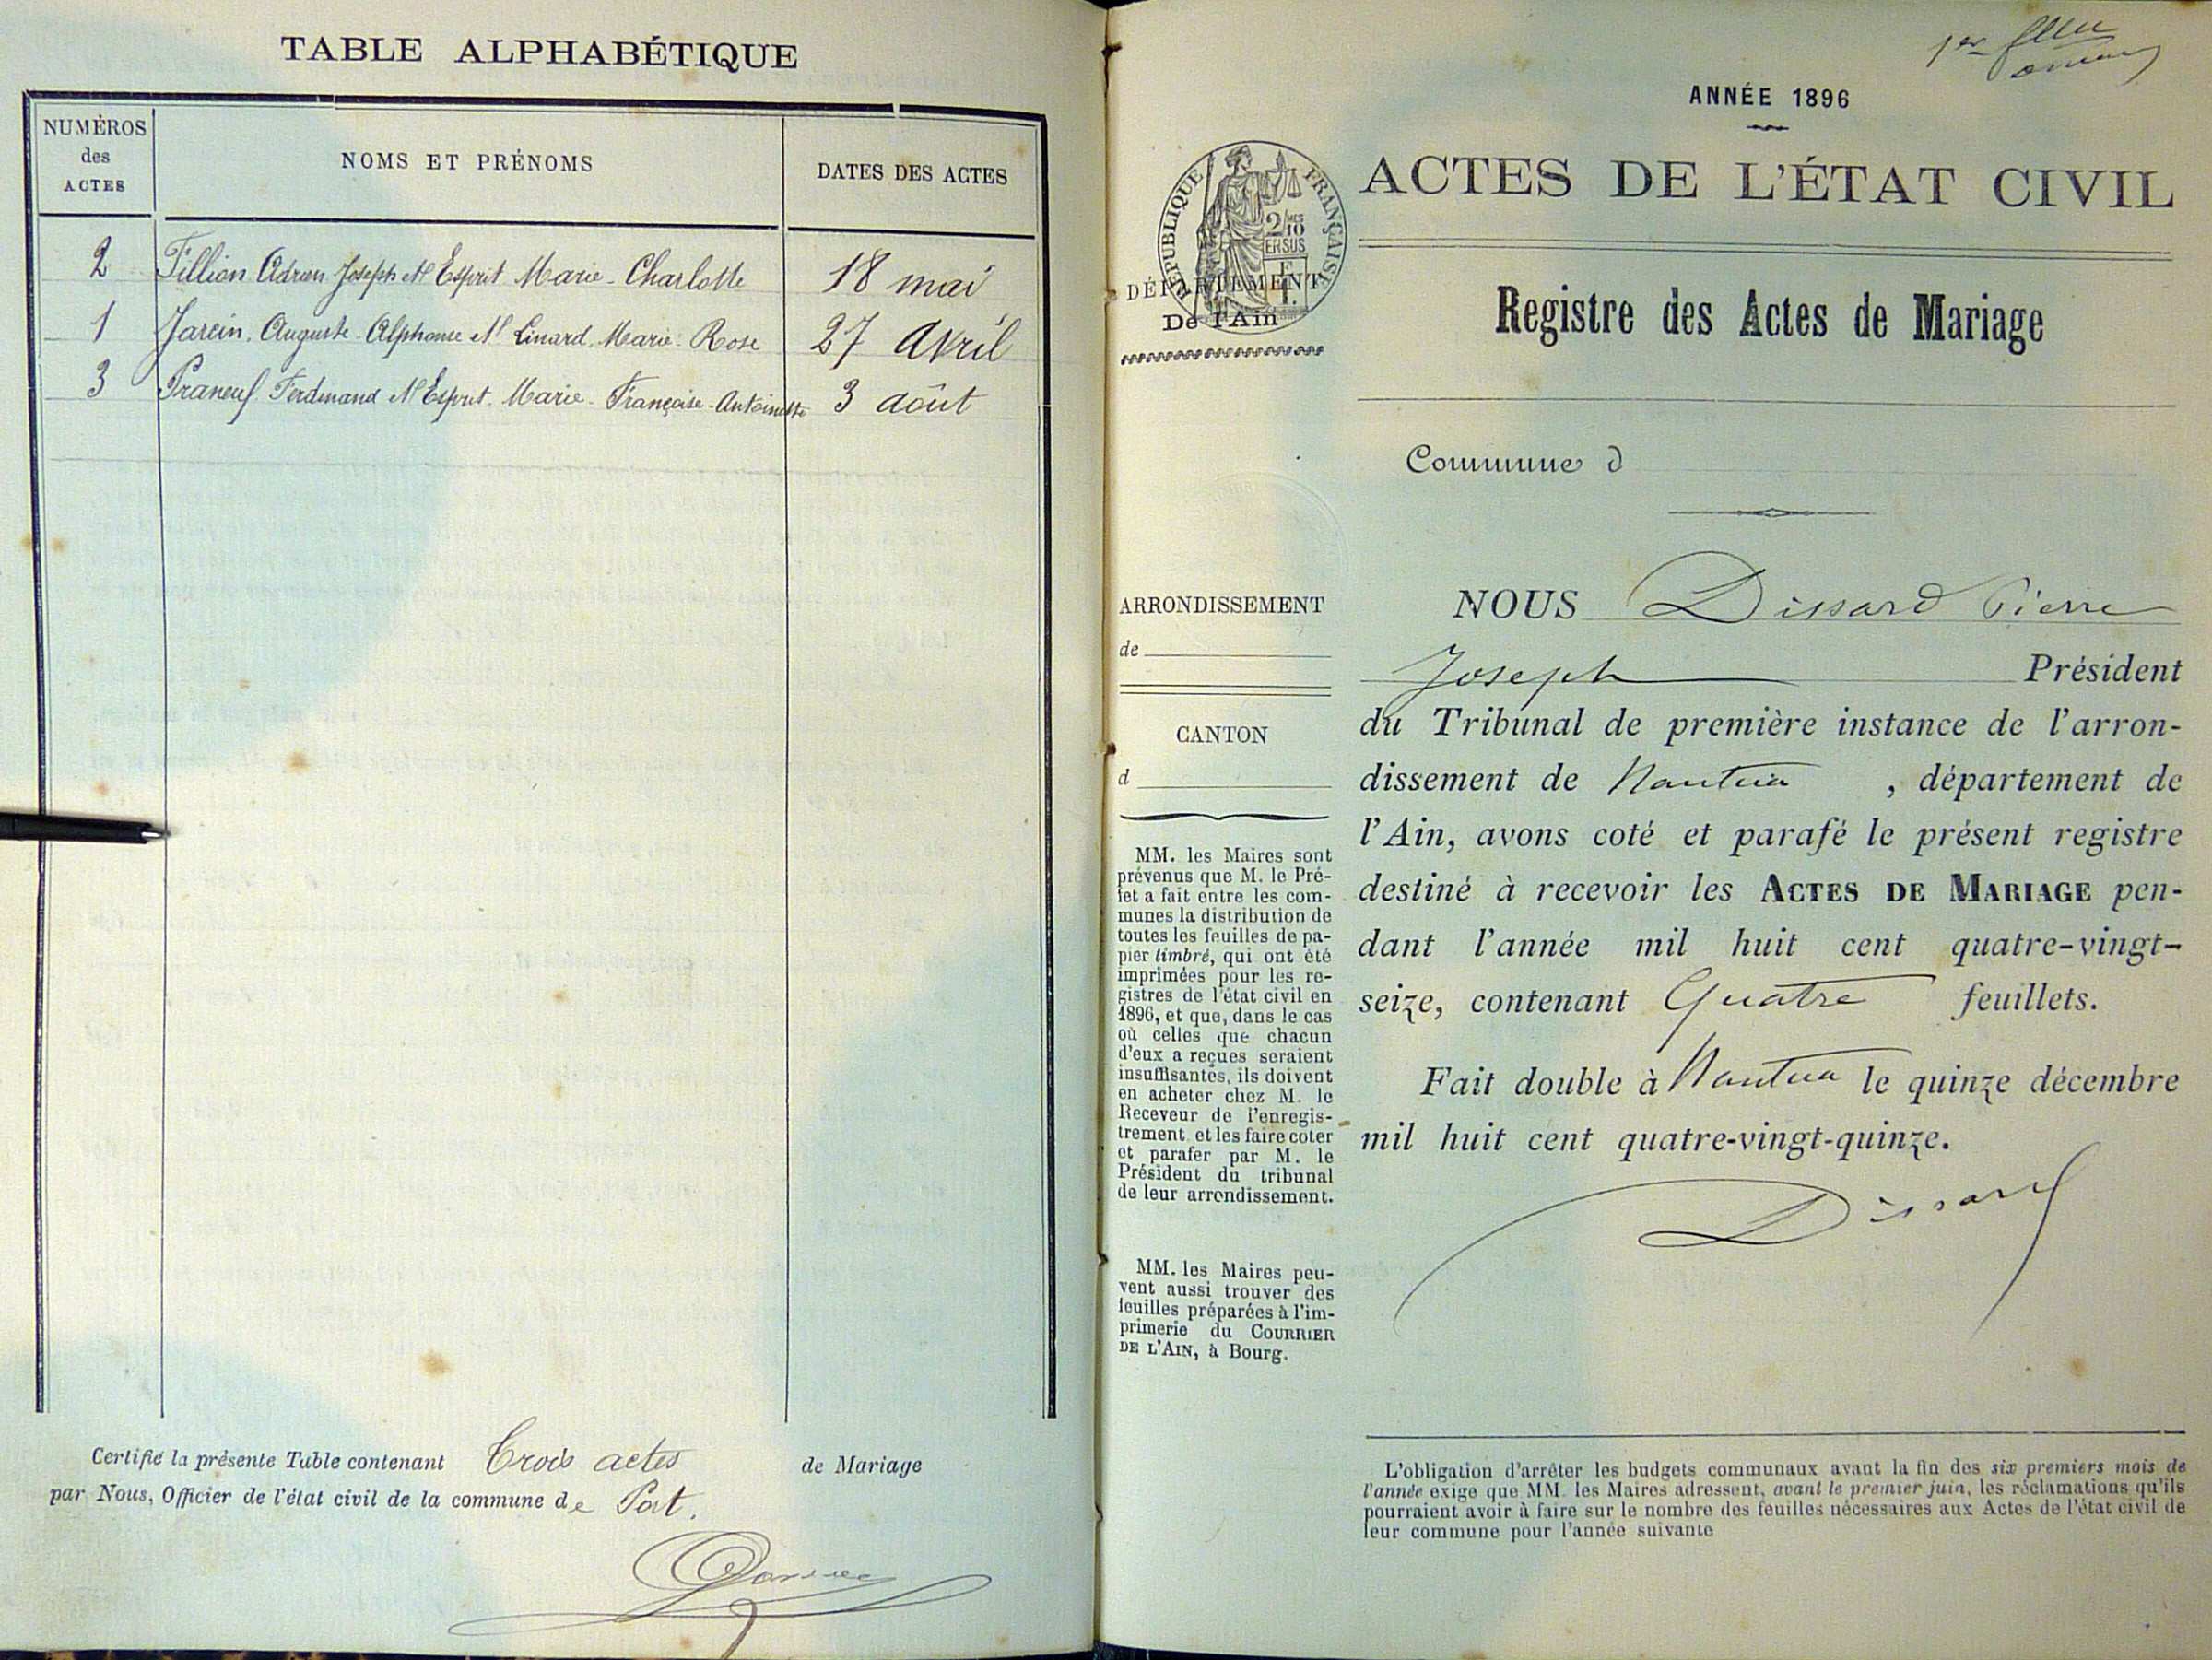 TABLE ALPHABÉTIQUE
NUMÉROS
des
ACTES
NOMS ET PRÉNOMS
DATES DES ACTES
2 Tillion Adrien Joseph et Esprit Marie-Charlotte 18 mai
1 Jarcin, Auguste-Alphonse et Linard, Marie-Rose 27 Avril
3 Praneuf Ferdinand et Esprit Marie-Françoise-Antoinette 3 août
Certifié la présente Table contenant Trois actes de Mariage
par Nous, Officier de l'état civil de la commune de Port.
1er
ANNÉE 1896
RÉPUBLIQUE FRANÇAISE
2/10MES
EN SUS
ACTES DE L'ÉTAT CIVIL
DÉPARTEMENT
De l'Ain
Registre des Actes de Mariage
Commune d
ARRONDISSEMENT
de
CANTON
d
MM. les Maires sont
prévenus que M. le Pré-
fet a fait entre les com-
munes la distribution de
toutes les feuilles de pa-
pier timbré, qui ont été
imprimées pour les re-
gistres de l'état civil en
1896, et que, dans le cas
où celles que chacun
d'eux a reçues seraient
insuffisantes, ils doivent
en acheter chez M. le
Receveur de l'enregis-
trement et les faire coter
et parafer par M. le
Président du tribunal
de leur arrondissement.
MM. les Maires peu-
vent aussi trouver des
feuilles préparées à l'im-
primerie du COURRIER
DE L'AIN, à Bourg.
NOUS Dissard Pierre
Joseph Président
du Tribunal de première instance de l'arron-
dissement de Nantua , département de
l'Ain, avons coté et parafé le présent registre
destiné à recevoir les ACTES DE MARIAGE pen-
dant l'année mil huit cent quatre-vingt-
seize, contenant Quatre feuillets.
Fait double à Nantua le quinze décembre
mil huit cent quatre-vingt-quinze.
Dissard
L'obligation d'arrêter les budgets communaux avant la fin des six premiers mois de
l'année exige que MM. les Maires adressent, avant le premier juin, les réclamations qu'ils
pourraient avoir à faire sur le nombre des feuilles nécessaires aux Actes de l'état civil de
leur commune pour l'année suivante